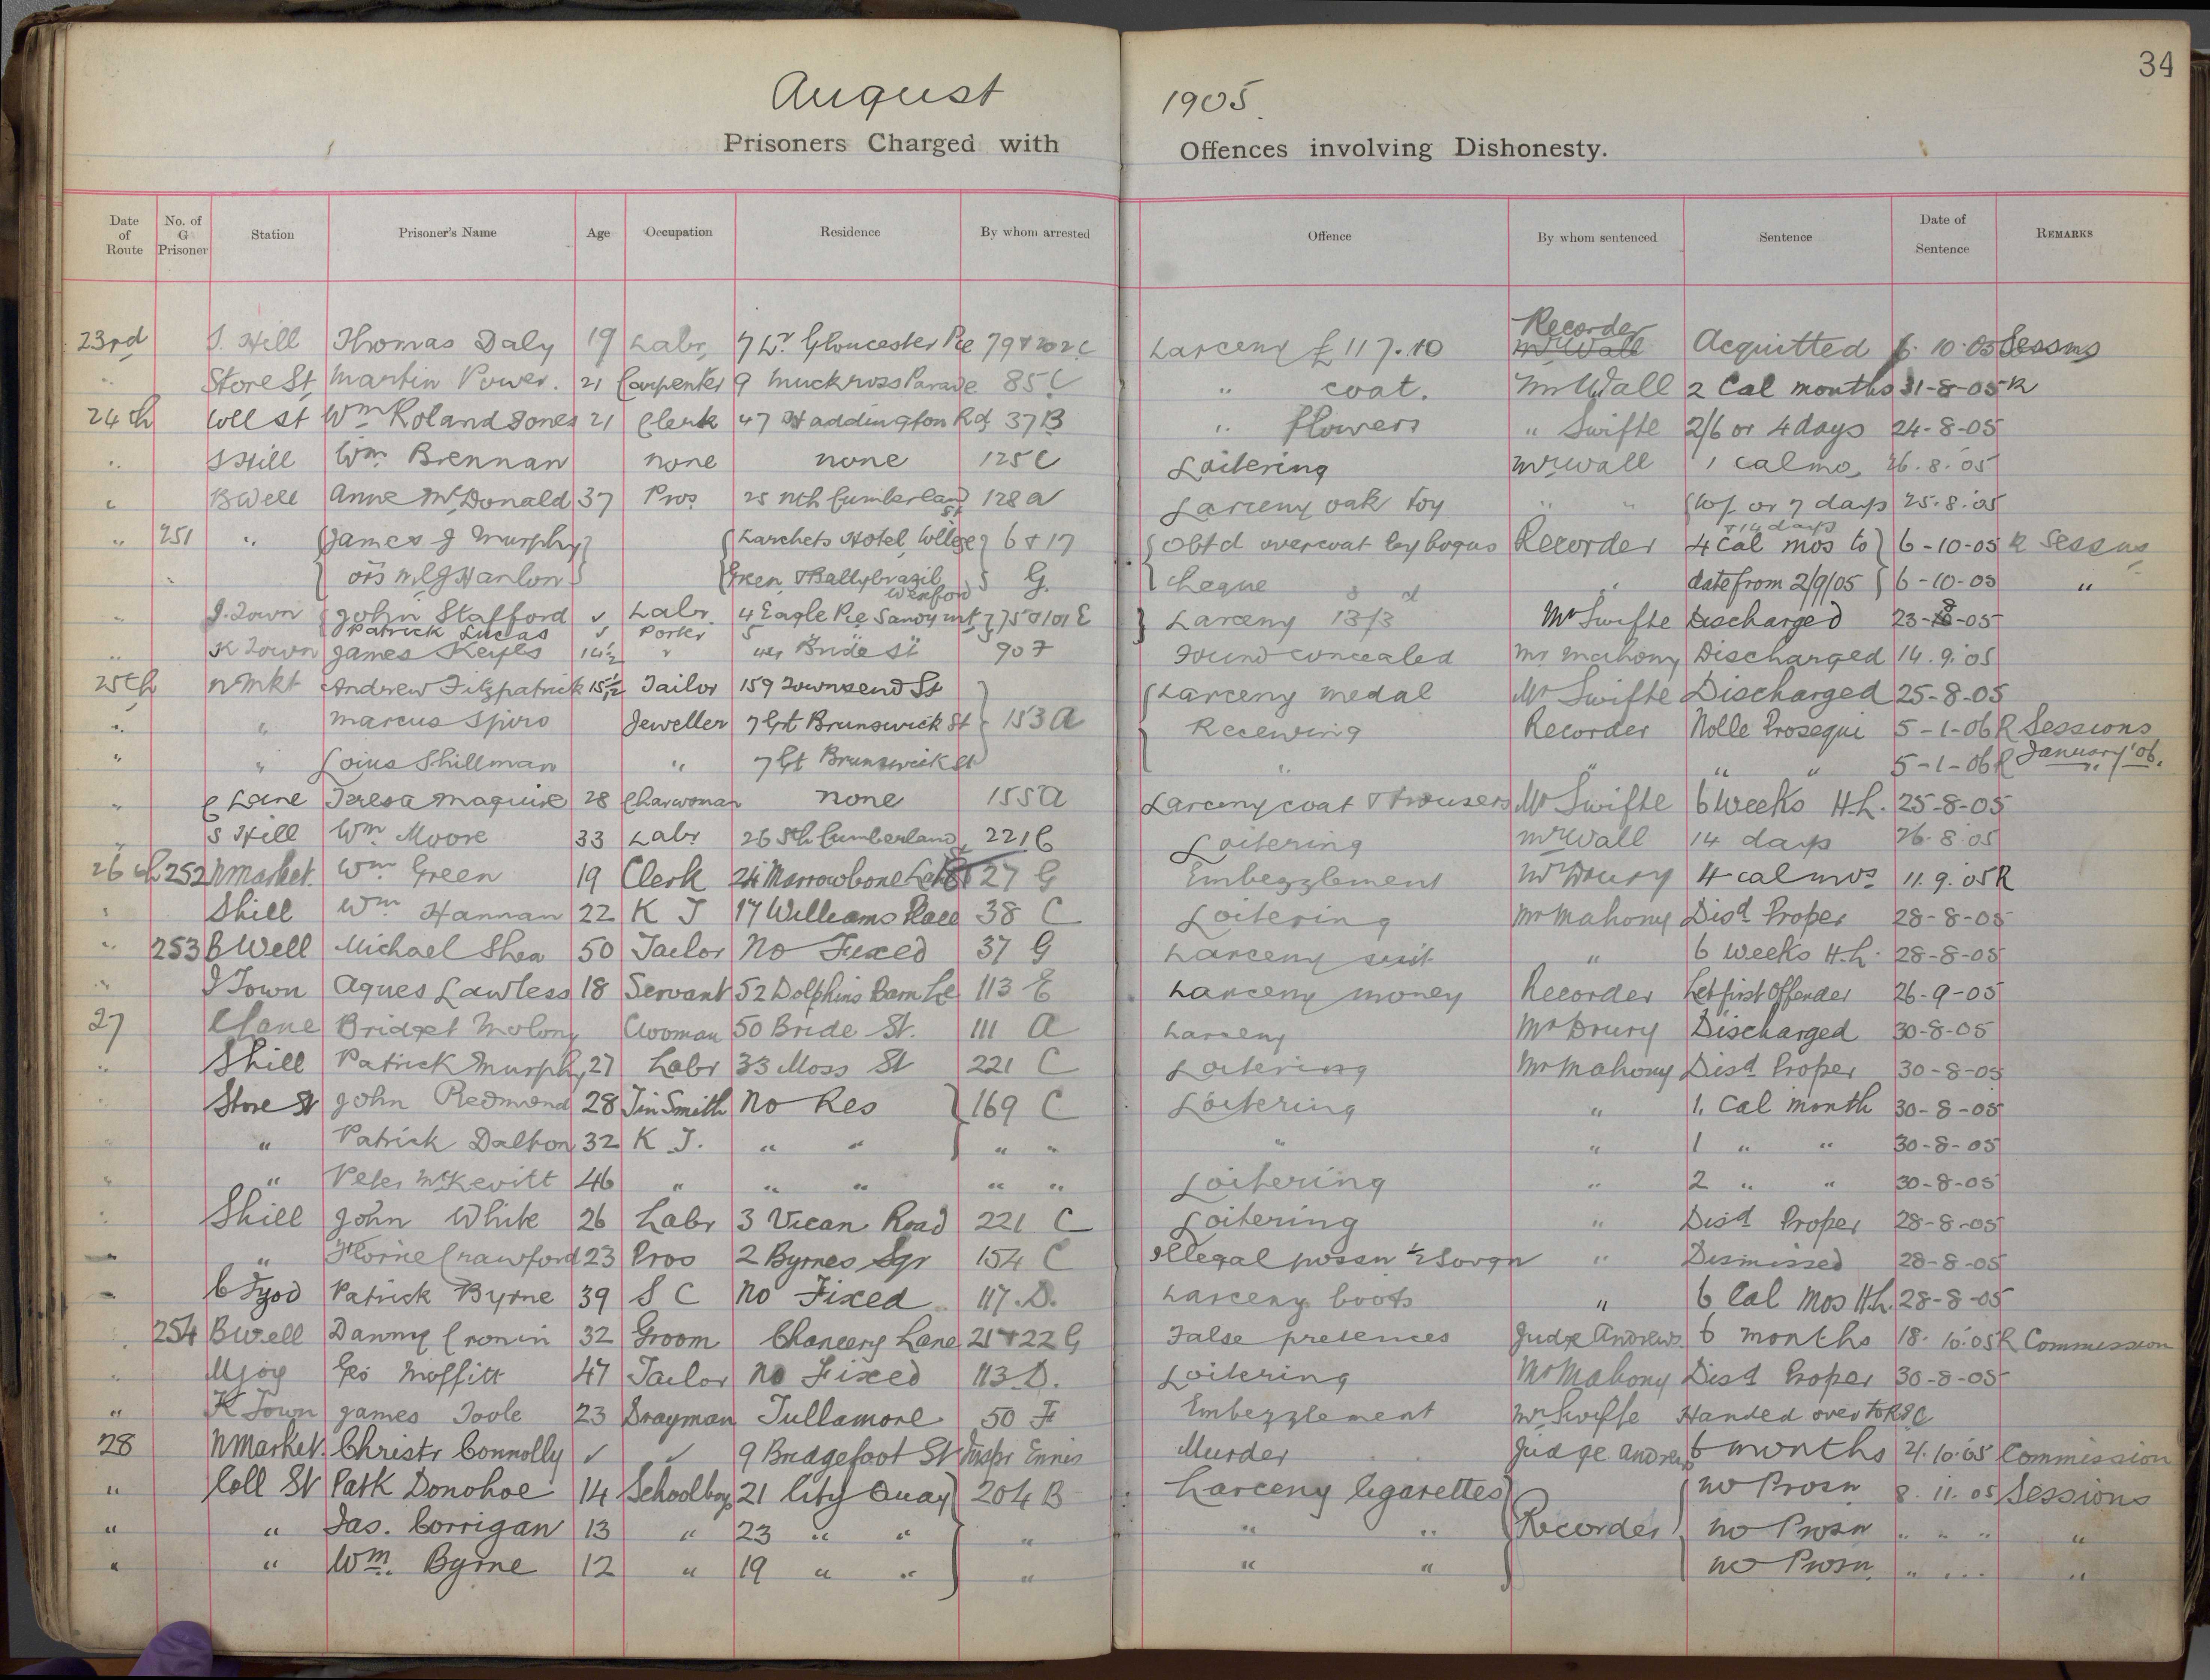 34
August 1905
Prisoners Charged with Offences involving Dishonesty.
Date of Route No. of G Prisoner Station Prisoner's Name Age Occupation Residence By whom arrested Offence By whom sentenced Sentence Date of Sentence REMARKS
23rd S. Hill Thomas Daly 19 Labr, 7 Lr Gloucester Ple 79 & 202 C Larceny £117.10 Recorder Mr Wall Acquitted 6. 10.05 Sessns
" Store St Martin Power. 21 Carpenter 9 Muckross Parade 85 C " coat. Mr Wall 2 Cal months 31-8-05 R
24th Coll St Wm Roland Jones 21 Clerk 47 Haddington Rd 37 B " flowers " Swifte 2/6 or 4 days 24-8-05
" S Hill Wm Brennan none none 125 C Loitering Mr Wall 1 cal mo. 26.8.05
" B Well Anne McDonald 37 Pros 25 Nth Cumberland St 128 A Larceny oak toy " " 10/- or 7 days 25.8.05
" 251 " James J Murphy Larchets Hotel College 6 & 17 Obtd overcoat by bogus Recorder 4 Cal mos to & 14 days 6-10-05 R Sessns
" ors Ml J Hanlon Green & Ballybrazil Wexford G. Cheque " date from 2/9/05 6-10-05 "
" I. Town John Stafford ✓ Labr. 4 Eagle Ple Sandymt 75 & 101 E Larceny 13s/3d Mr Swifte Discharged 23-8-05
Patrick Lucas ✓ Porter 5
" K Town James Keyes 14½ " Bride St 90 F Found concealed Mr Mahony Discharged 14.9.05
25th N Mkt Andrew Fitzpatrick 15 1/12 Tailor 159 Townsend St Larceny medal Mr Swifte Discharged 25-8-05
" " Marcus Spiro Jeweller 7 Grt Brunswick St 153 A Receiving Recorder Nolle Prosequi 5-1-06 R Sessions
" " Loius Shillman " 7 Gt Brunswick St " " " " 5-1-06 R January '06.
" C Lane Teresa Maguire 28 Charwoman none 155 A Larceny coat & trousers Mr Swifte 6 Weeks H.L. 25-8-05
" S Hill Wm Moore 33 Labr 26 Sth Cumberland St 221 C Loitering Mr Wall 14 days 26.8.05
26th 252 N Market. Wm Green 19 Clerk 24 Marrowbone Lane 27 G Embezzlement Mr Drury 4 cal mos 11.9.05 R
" S hill Wm Hannan 22 K J 17 Williams Place 38 C Loitering Mr Mahony Disd Proper 28-8-05
" 253 B Well Michael Shea 50 Tailor No Fixed 37 G Larceny suit " 6 weeks H.L. 28-8-05
" I Town Agnes Lawless 18 Servant 52 Dolphins Barn Le 113 E Larceny money Recorder Let first Offender 26-9-05
27 C Lane Bridget Molony Cwoman 50 Bride St. 111 A Larceny Mr Drury Discharged 30-8-05
" S hill Patrick Murphy 27 Labr 33 Moss St 221 C Loitering Mr Mahony Disd Proper 30-8-05
" Store St John Redmond 28 Tin Smith No Res 169 C Loitering " 1. Cal month 30-8-05
" " Patrick Dalton 32 K J. " " " " " " 1 " " 30-8-05
" " Peter McKevitt 46 " " " " " Loitering " 2 " " 30-8-05
" S hill John White 26 Labr 3 Vican Road 221 C Loitering " Disd Proper 28-8-05
" " Florrie Crawford 23 Pros 2 Byrnes Sqr 154 C Illegal possn ½ Sovgn " Dismissed 28-8-05
" Patrick Byrne 39 S C No Fixed 117. D. Larceny boots " 6 Cal Mos H.L. 28-8-05
254 B Well Danny Cronin 32 Groom Chancery Lane 21 & 22 G False pretences Judge Andrews 6 months 18.10.05 R Commission
" Mjoy Geo Moffitt 47 Tailor No Fixed 113. D. Loitering Mr Mahony Disd Proper 30-8-05
" K Town James Toole 23 Drayman Tullamore 50 F Embezzlement Mr Swifte Handed over to RIC
28 N Market. Christr Connolly ✓ ✓ 9 Bridgefoot St Inspr Ennis Murder Judge Andrews 6 months 21.10.05 Commission
" Coll St Patk Donohoe 14 Schoolboy 21 City Quay 204 B Larceny Cigarettes no Prosn 8. 11. 05 Sessions
" " Jas. Corrigan 13 " 23 " " " " " Recorder no Prosn " " " "
" " Wm. Byrne 12 " 19 " " " " " no Prosn " " " "